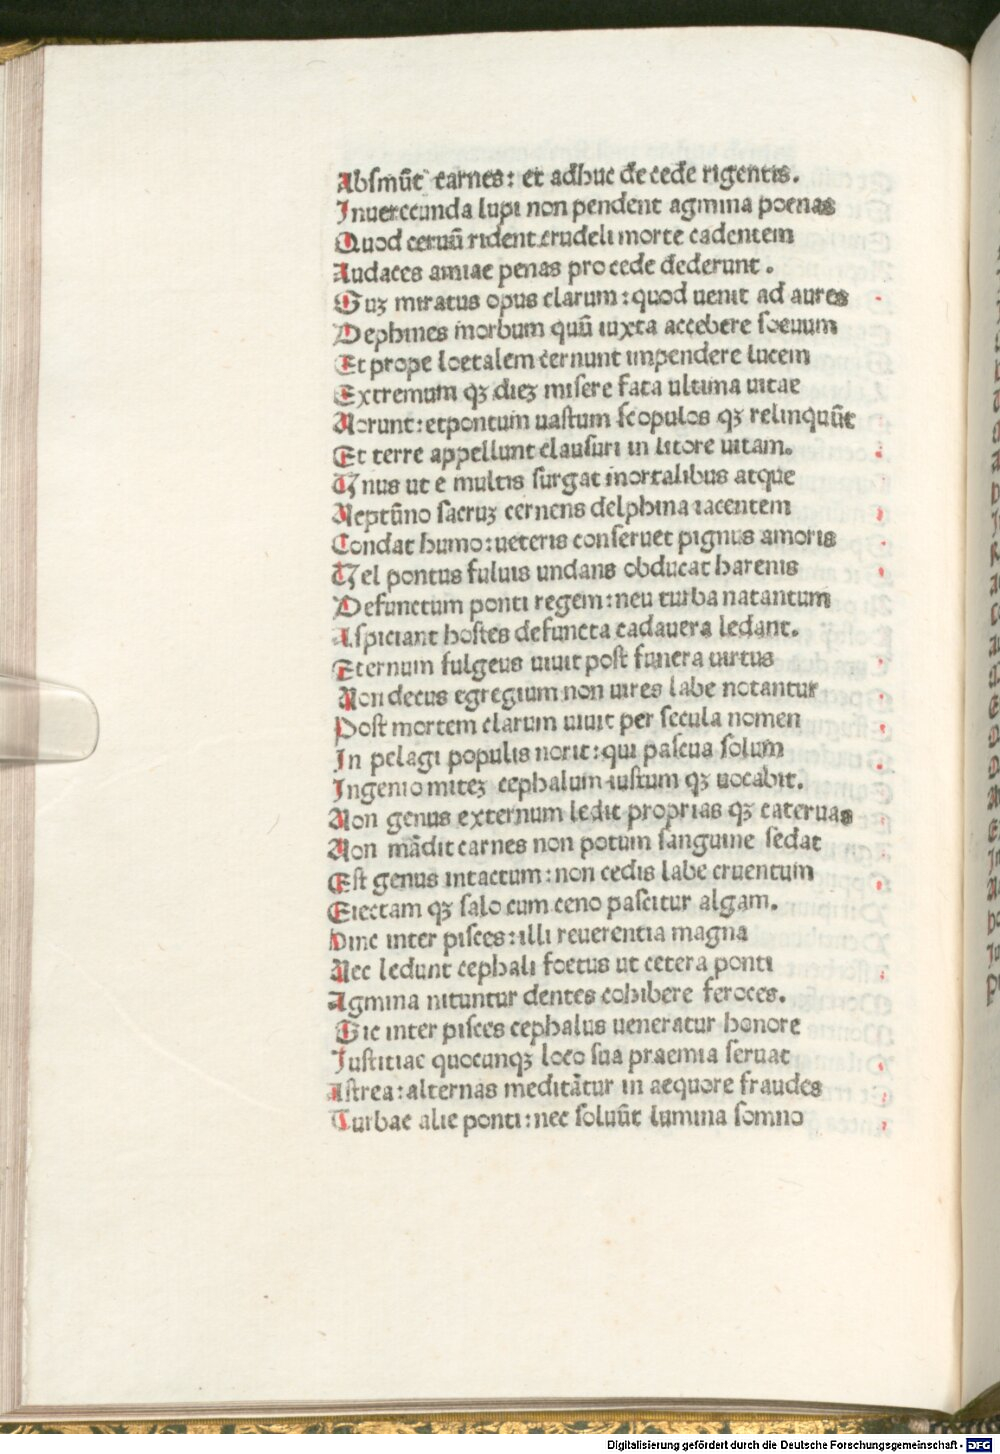 Absmūt carnes: et adhuc de cede rigentis.
Inuerecunda lupi non pendent agmina poenas
Quod ceruū rident crudeli morte cadentem
Audaces amiae penas pro cede dederunt.
Suꝫ miratus opus clarum: quod uenit ad aures
Dephines morbum quū iuxta accebere soeuum
Et prope loetalem cernunt impendere lucem
Extremum qꝫ dieꝫ misere fata ultima uitae
Norunt: et pontum uastum scopulos qꝫ relinquūt
Et terre appellunt clausuri in litore uitam.
Vnus ut e multis surgat mortalibus atque
Neptūno sacruꝫ cernens delphina iacentem
Condat humo: ueteris conseruet pignus amoris
Vel pontus fuluis undans obducat harenis
Defunctum ponti regem: neu turba natantum
Aspiciant hostes defuncta cadauera ledant.
Eternum fulgeus uiuit post funera uirtus
Non decus egregium non uires labe notantur
Post mortem clarum uiuit per secula nomen
In pelagi populis norit: qui pascua solum
Ingenio miteꝫ cephalum iustum qꝫ uocabit.
Non genus externum ledit proprias qꝫ cateruas
Non mādit carnes non potum sanguine sedat
Est genus intactum: non cedis labe cruentum
Eiectam qꝫ salo cum ceno pascitur algam.
Hinc inter pisces: illi reuerentia magna
Nec ledunt cephali foetus ut cetera ponti
Agmina nituntur dentes cohibere feroces.
Sic inter pisces cephalus ueneratur honore
Iustitiae quocunqꝫ loco sua praemia seruat
Astrea: alternas meditātur in aequore fraudes
Turbae alie ponti: nec soluūt lumina somno
Digitalisierung gefördert durch die Deutsche Forschungsgemeinschaft - DFG